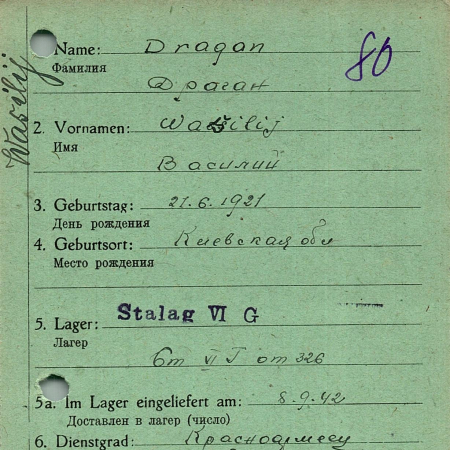 Name: Dragan
80
Фамилия
Драган
Wasilij
2. Vornamen: Wassilij
Имя
Василий
3. Geburtstag: 21.6.1921
День рождения
4. Geburtsort: Киевская обл
Место рождения
5. Lager: Stalag VI G
Лагер
VI J от 326
5a. Im Lager eingeliefert am: 8.9.42
Доставлен в лагер (число)
6. Dienstgrad: Красноармеец